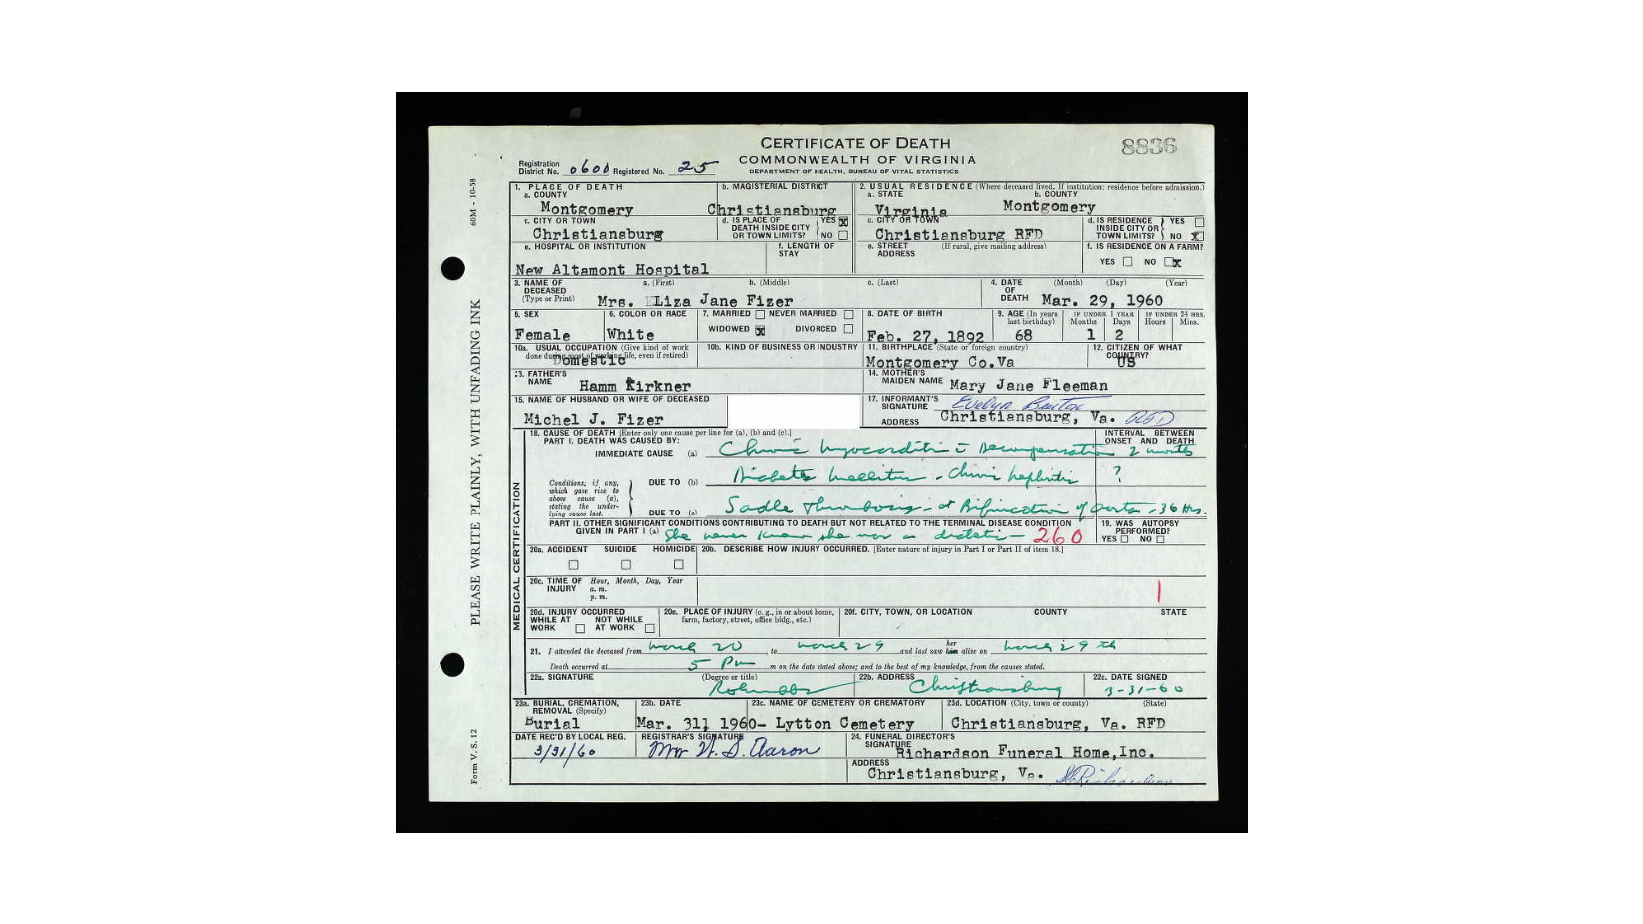 CERTIFICATE OF DEATH
8836
COMMONWEALTH OF VIRGINIA
DEPARTMENT OF HEALTH, BUREAU OF VITAL STATISTICS
Registration District No. 0600 Registered No. 25
60M - 10-58
PLEASE WRITE PLAINLY, WITH UNFADING INK
Form V. S. 12
1. PLACE OF DEATH
a. COUNTY
Montgomery
b. MAGISTERIAL DISTRICT
Christiansburg
2. USUAL RESIDENCE (Where deceased lived. If institution: residence before admission.)
a. STATE
Virginia
b. COUNTY
Montgomery
c. CITY OR TOWN
Christiansburg
d. IS PLACE OF DEATH INSIDE CITY OR TOWN LIMITS? YES NO
c. CITY OR TOWN
Christiansburg RFD
d. IS RESIDENCE INSIDE CITY OR TOWN LIMITS? YES NO
e. HOSPITAL OR INSTITUTION
New Altamont Hospital
f. LENGTH OF STAY
e. STREET ADDRESS (If rural, give mailing address)
f. IS RESIDENCE ON A FARM?
YES NO
3. NAME OF DECEASED (Type or Print)
a. (First) b. (Middle) c. (Last)
Mrs. Liza Jane Fizer
4. DATE OF DEATH (Month) (Day) (Year)
Mar. 29, 1960
5. SEX
Female
6. COLOR OR RACE
White
7. MARRIED NEVER MARRIED
WIDOWED DIVORCED
8. DATE OF BIRTH
Feb. 27, 1892
9. AGE (In years last birthday)
68
IF UNDER 1 YEAR
Months Days
1 2
IF UNDER 24 HRS.
Hours Mins.
10a. USUAL OCCUPATION (Give kind of work done during most of working life, even if retired)
Domestic
10b. KIND OF BUSINESS OR INDUSTRY
11. BIRTHPLACE (State or foreign country)
Montgomery Co.Va
12. CITIZEN OF WHAT COUNTRY?
US
13. FATHER'S NAME
Hamm Kirkner
14. MOTHER'S MAIDEN NAME Mary Jane Fleeman
15. NAME OF HUSBAND OR WIFE OF DECEASED
Michel J. Fizer
17. INFORMANT'S SIGNATURE Evelyn Burton
ADDRESS Christiansburg, Va.
MEDICAL CERTIFICATION
18. CAUSE OF DEATH [Enter only one cause per line for (a), (b) and (c).]
PART I. DEATH WAS CAUSED BY:
INTERVAL BETWEEN ONSET AND DEATH
IMMEDIATE CAUSE (a) Chronic Myocarditis c Decompensation 2 months
Conditions, if any, which gave rise to above cause (a), stating the underlying cause last.
DUE TO (b) Diabetes Mellitus - Chronic Nephritis ?
DUE TO (c) Sadle Thrombosis - at Bifurcation of aorta - 36 Hrs.
PART II. OTHER SIGNIFICANT CONDITIONS CONTRIBUTING TO DEATH BUT NOT RELATED TO THE TERMINAL DISEASE CONDITION
GIVEN IN PART I (a) She never knew she was a diabetic - 260
19. WAS AUTOPSY PERFORMED?
YES NO
20a. ACCIDENT SUICIDE HOMICIDE
20b. DESCRIBE HOW INJURY OCCURRED. [Enter nature of injury in Part I or Part II of item 18.]
20c. TIME OF INJURY Hour, Month, Day, Year
a. m.
p. m.
20d. INJURY OCCURRED
WHILE AT WORK NOT WHILE AT WORK
20e. PLACE OF INJURY (e. g., in or about home, farm, factory, street, office bldg., etc.)
20f. CITY, TOWN, OR LOCATION COUNTY STATE
21. I attended the deceased from March 20, to March 29 and last saw her him alive on March 29th
Death occurred at 5 Pm m on the date stated above; and to the best of my knowledge, from the causes stated.
22a. SIGNATURE (Degree or title)
22b. ADDRESS
Christiansburg
22c. DATE SIGNED
3-31-60
23a. BURIAL, CREMATION, REMOVAL (Specify)
Burial
23b. DATE
Mar. 31, 1960-
23c. NAME OF CEMETERY OR CREMATORY
Lytton Cemetery
23d. LOCATION (City, town or county) (State)
Christiansburg, Va. RFD
DATE REC'D BY LOCAL REG.
3/31/60
REGISTRAR'S SIGNATURE
Mrs W. S. Aaron
24. FUNERAL DIRECTOR'S SIGNATURE
Richardson Funeral Home, Inc.
ADDRESS
Christiansburg, Va.